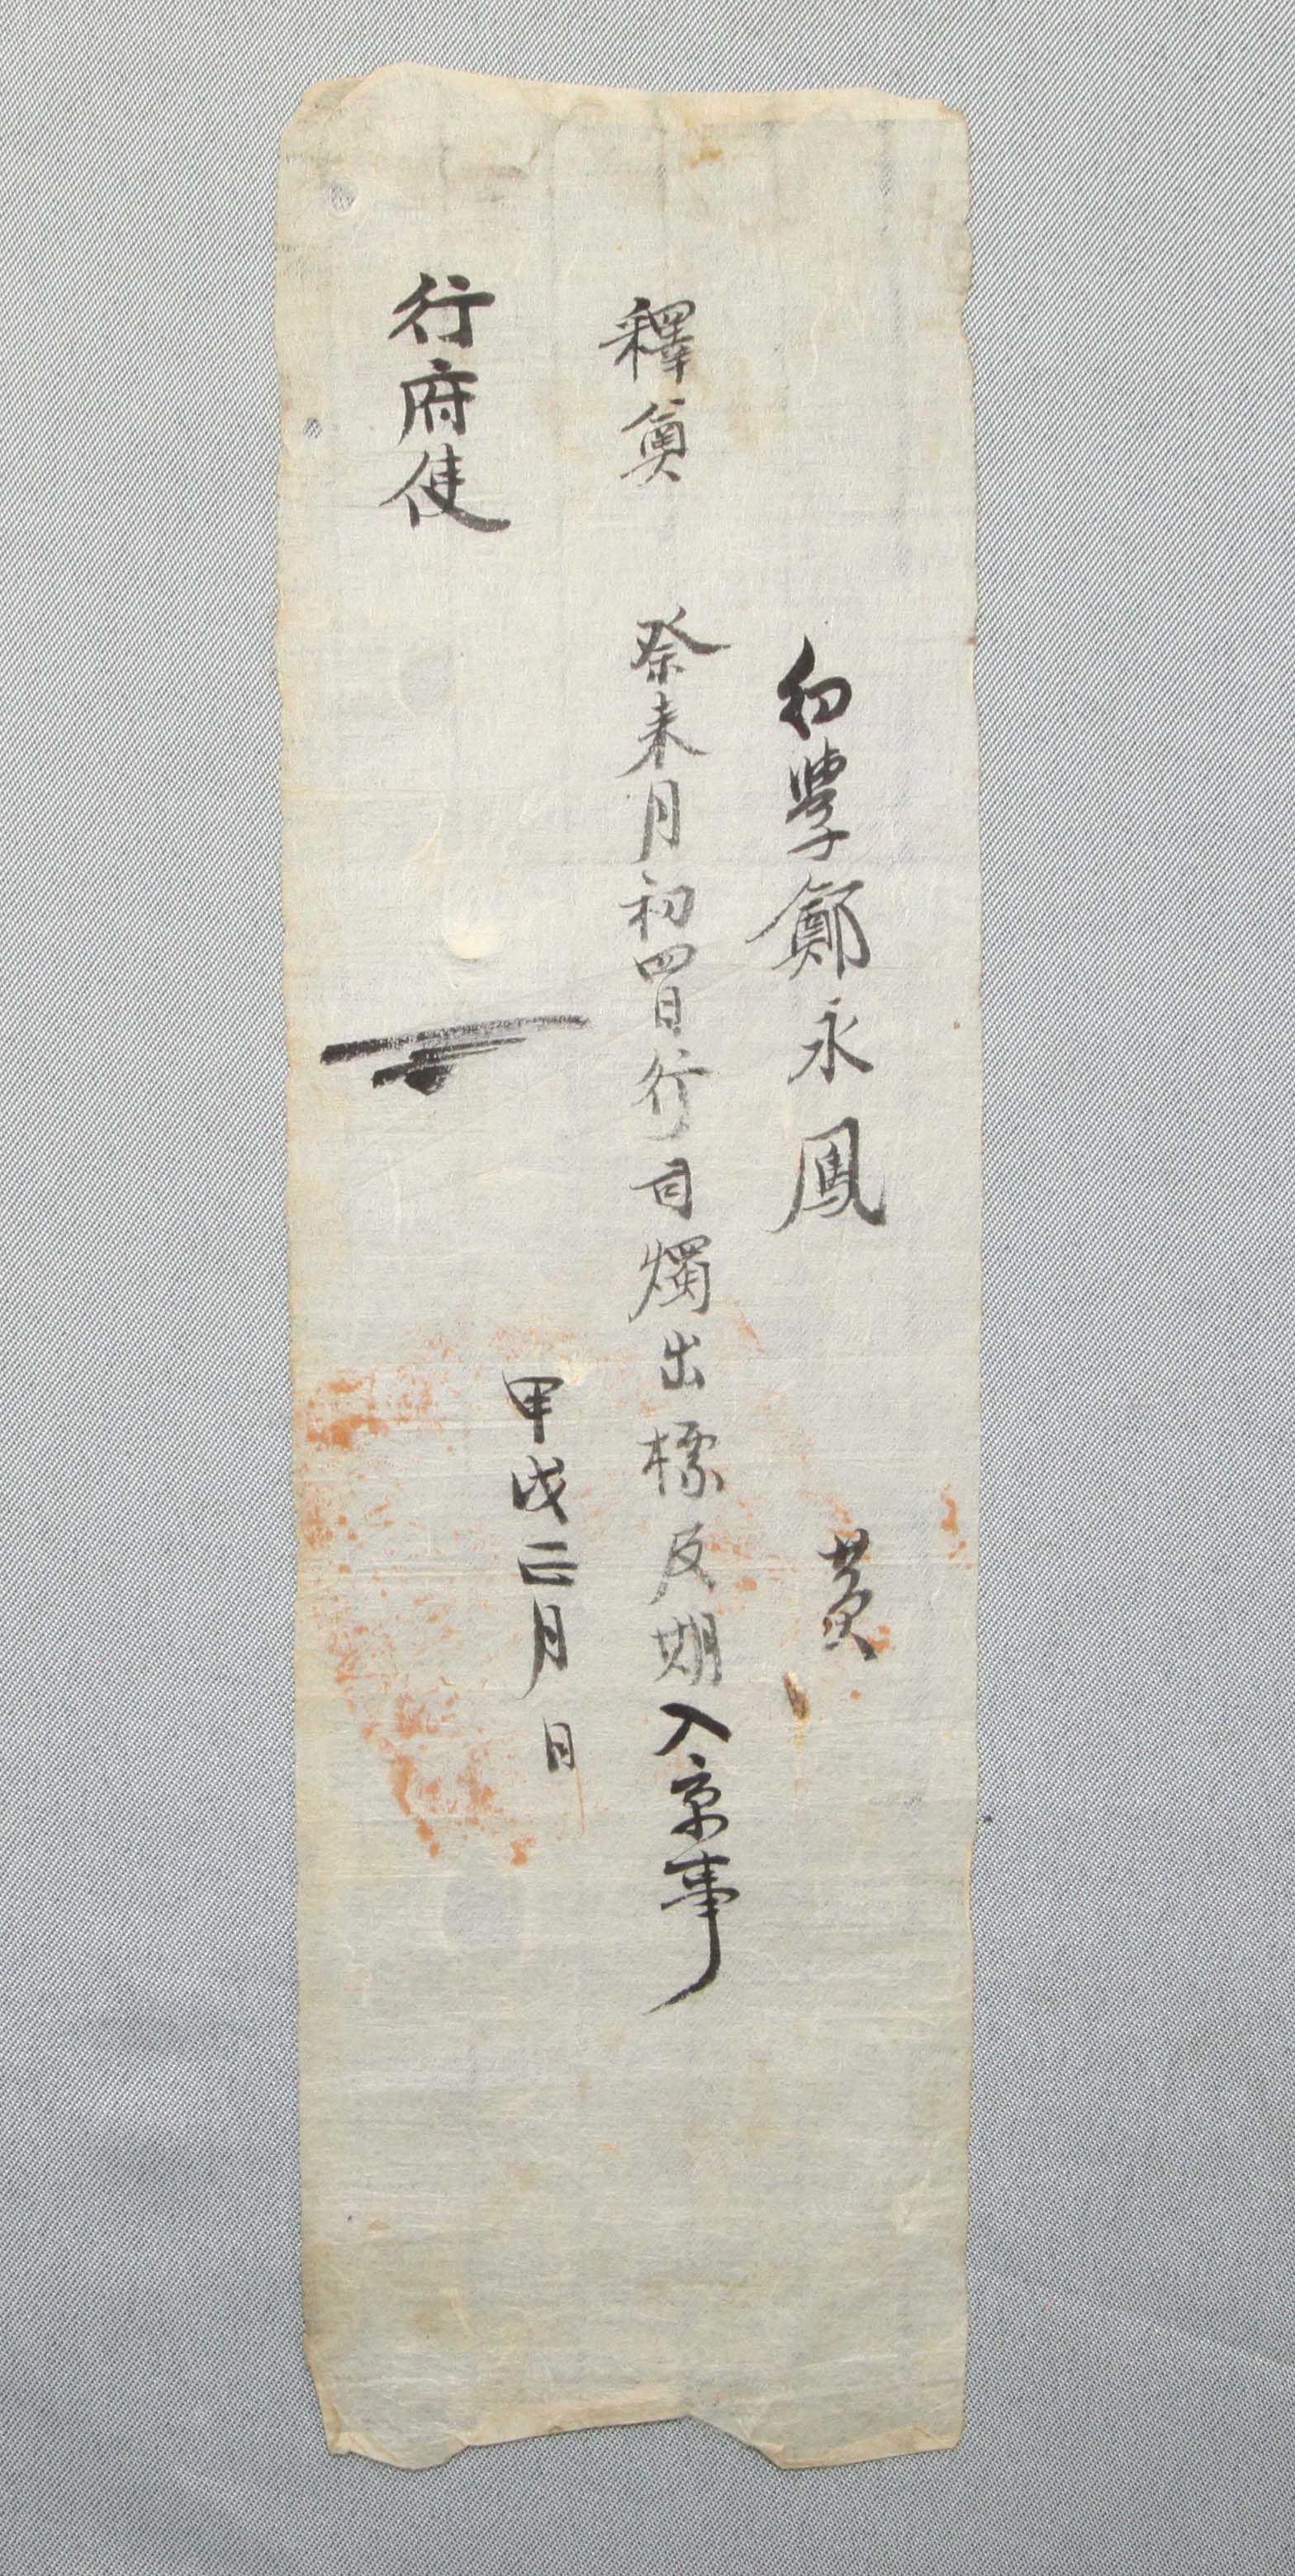 幼學鄭永鳳 黃
釋奠 祭來月初四日行司燭出標及期入京事
甲戌二月 日
行府使